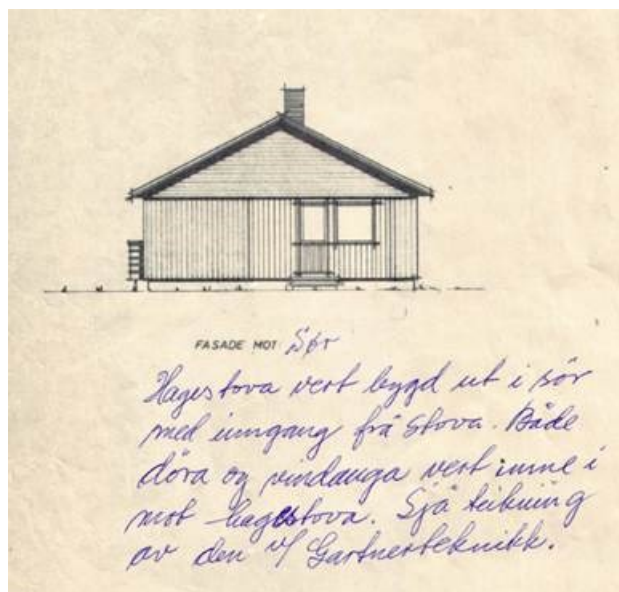 FASADE MOT: Sør
Hagestova vert bygd ut i sör
med inngang frå stova. Både
döra og vindauga vert inne i
mot hagestova. Sjå teikning
av den v/ Gartnerteknikk.